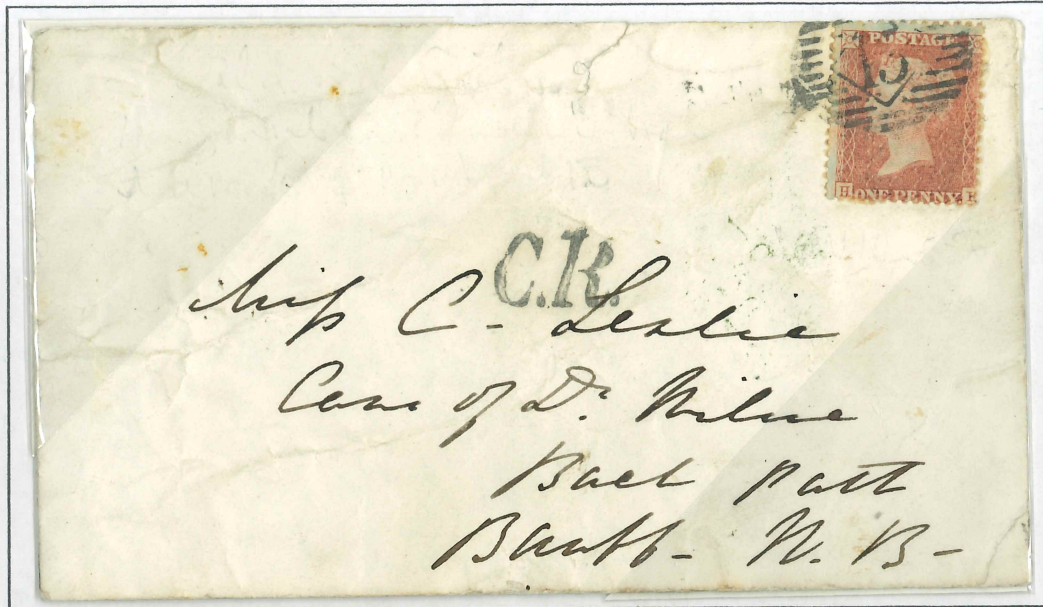 POSTAGE
15
ONE PENNY
H
C.R.
Miss C. Leslie
Care of Dr. Milne
Back Path
Banff - N. B -